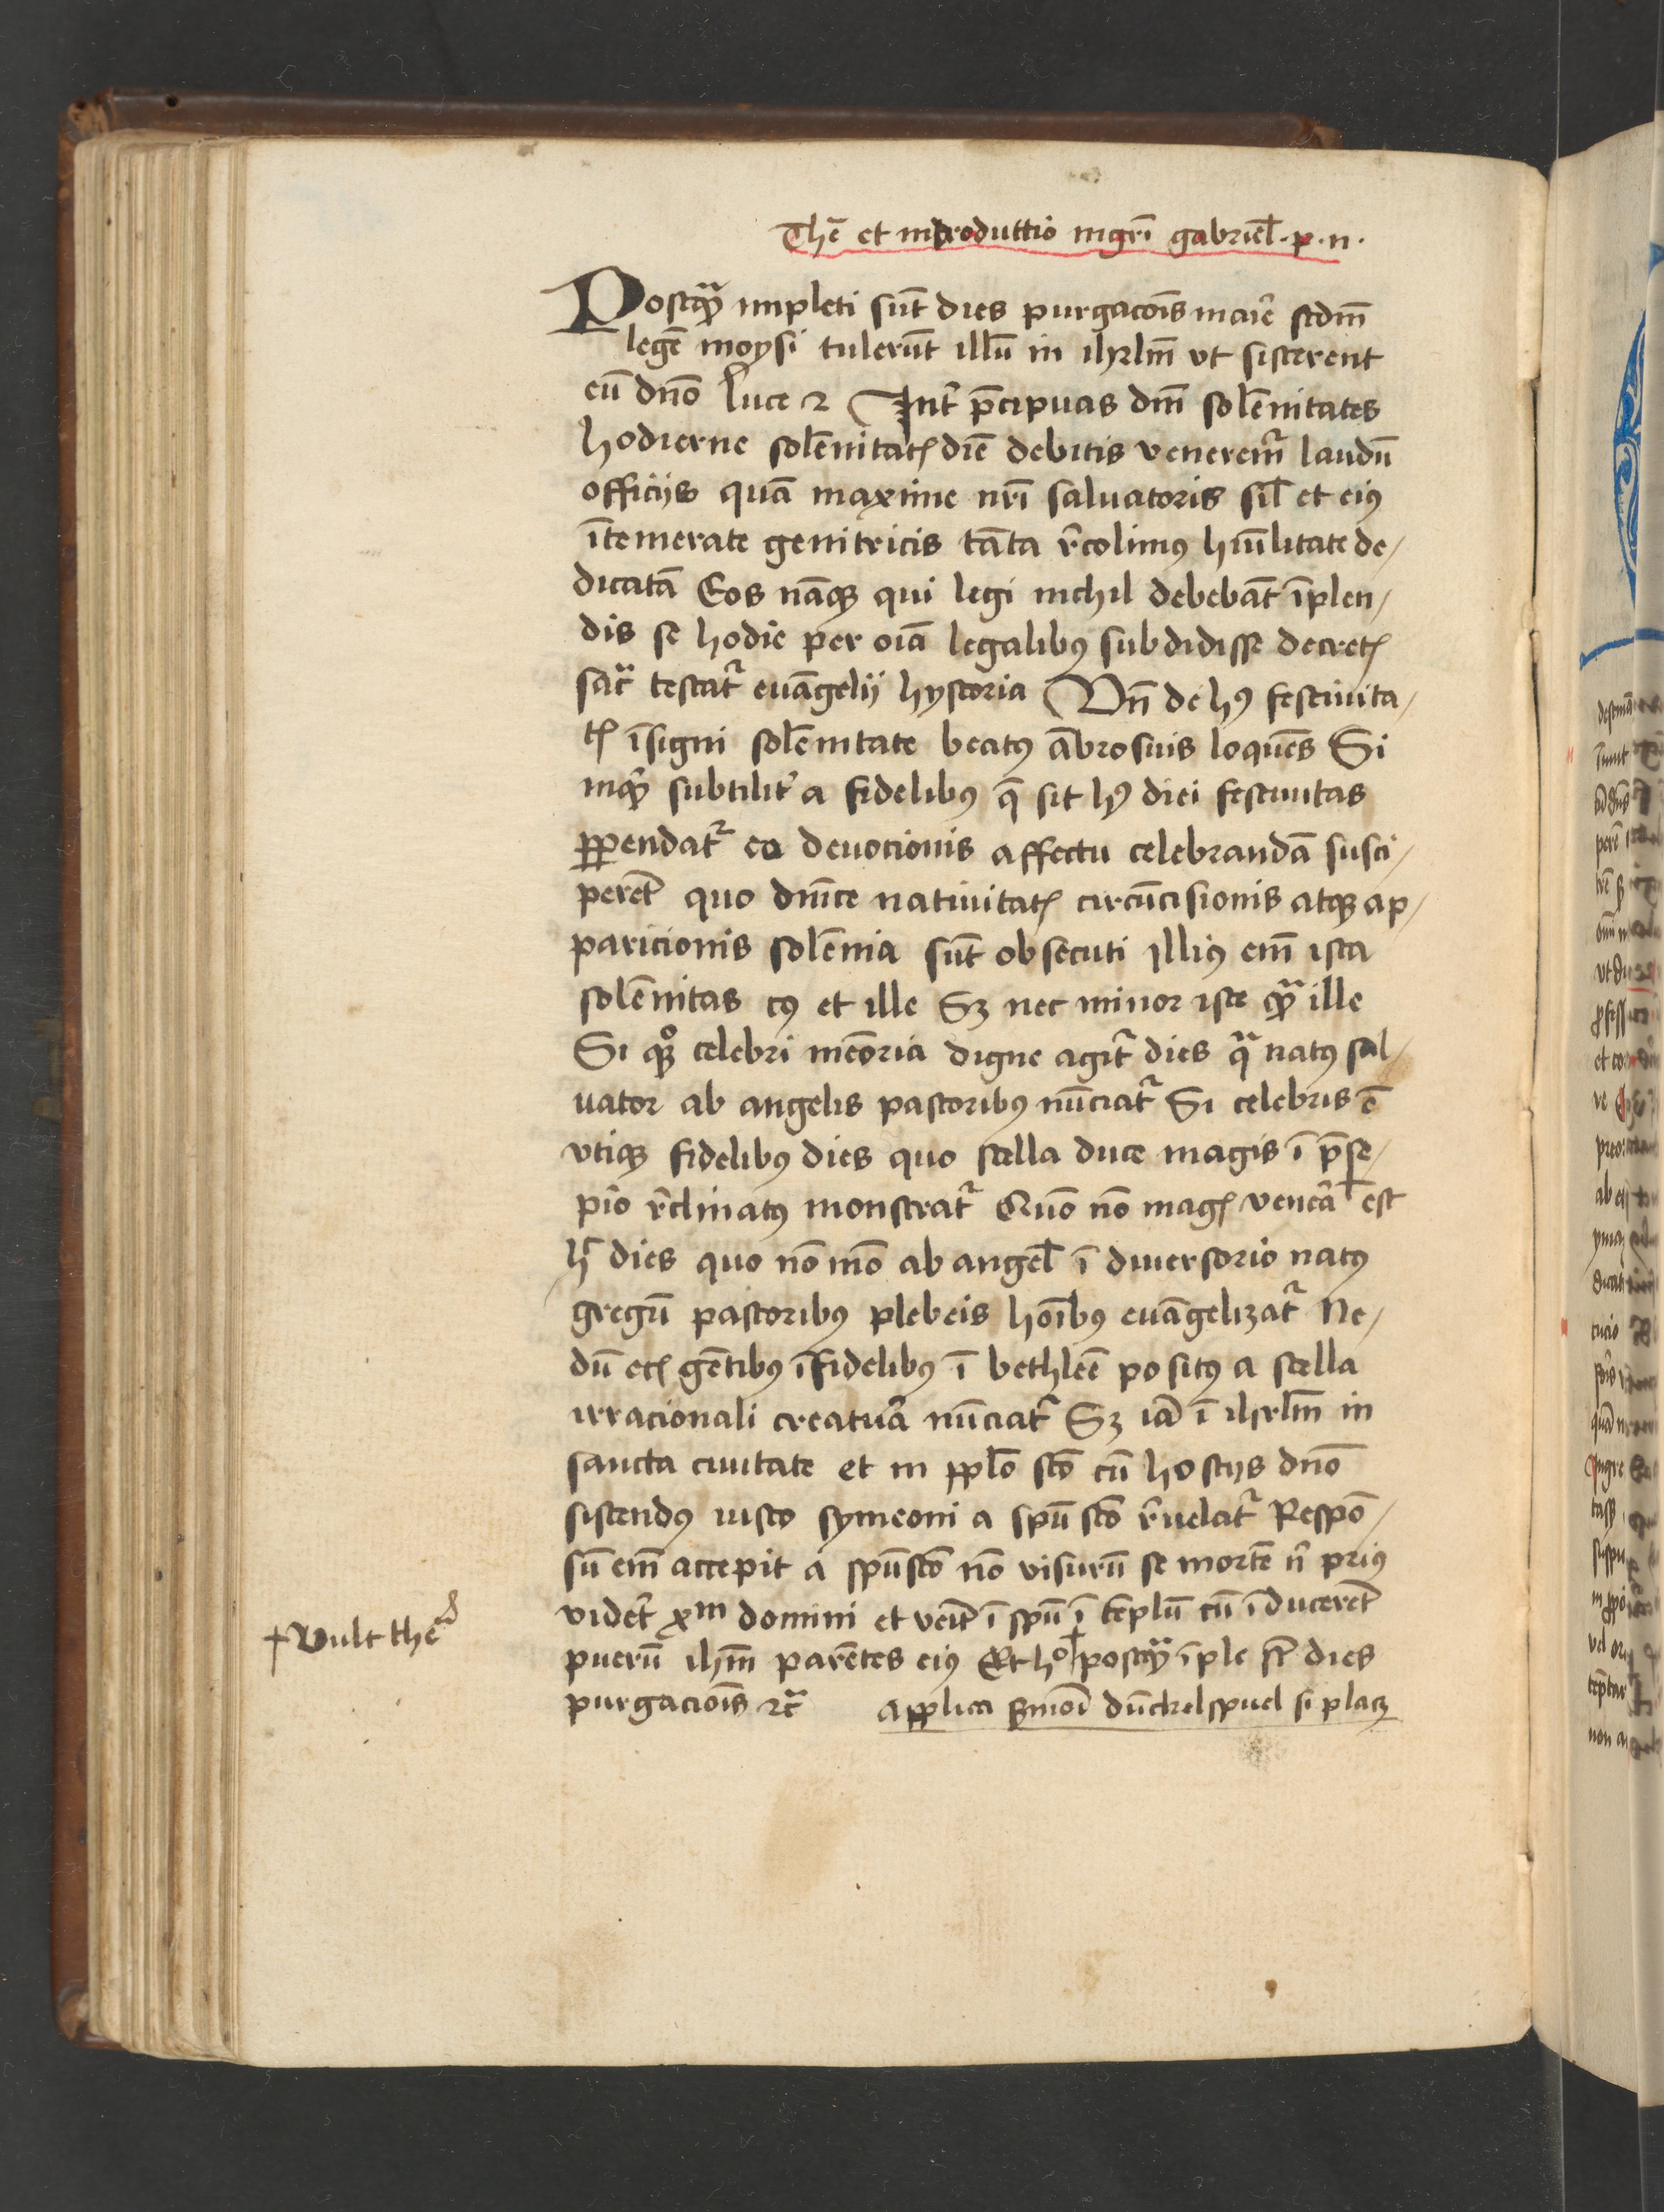 Thē et introductio mgrī gabriel̄ . p . n .
Postqȝ impleti sūt dies purgacōis marie scdm̄
legē moysi tulerūt illū in ihrlm̄ vt sisterent
eū dn̄o Luce 2 Int̄ p̄cipuas dm̄ solēnitates
hodierne solēnitatꝭ diē debitis veneremr̄ laudū
officijs quā maxime nrī saluatoris sil̄ et eiꝰ
ītemerate genitricis tāta r̄colimꝰ hūīlitate de/
dicatā Eos nāqȝ qui legi nichil debebāt īplen/
dis se hodie per oīa legalibꝰ subdidisse decretꝭ
sac̄ testatr̄ euāngelij hystoria Vn̄ de hꝰ festiuita/
tꝭ īsigni solēnitate beatꝰ ābrosius loquēs Si
inqt̄ subtilit̄ a fidelibꝰ q̄ sit hꝰ diei festiuitas
ꝑpendatr̄ eo deuocionis affectu celebrandā susci/
perēt quo dn̄ice natiuitatꝭ circūcisionis atqȝ ap/
paricionis solēnia sūt obsecuti Illiꝰ em̄ ista
solēnitas cꝰ et ille Sȝ nec minor iste qȝ ille
Si qȝ celebri memōria digne agit̄ dies qa natꝰ sal/
uator ab angelis pastoribꝰ nūciatr̄ Si celebris ē
vtiqȝ fidelibꝰ dies quo stella duce magis ī p̄se/
pio r̄clinatꝰ monstratr̄ Quō nō magꝭ venerā est
h̄ dies quo nō mō ab angel̄ ī diuersorio natꝰ
gregū pastoribꝰ plebeis hoībꝰ euāngelizatr̄ Ne/
dū etꝭ gētibꝰ īfidelibꝰ ī bethleē positꝰ a stella
irracionali creatura nūciatr̄ Sȝ iā ī ihrlm̄ in
sancta ciuitate et in tp̄lo sc̄o cū hostijs dn̄o
sistendꝰ iusto symeoni a spū sc̄o r̄uelatr̄ Respō/
sū em̄ accepit a spūsc̄o nō visurū se mortē n̄ priꝰ
videt̄ xp̄m domini et venīt ī spū ī tēplū cū īducerēt
puerū ihm̄ parētes eiꝰ Et hoc postqȝ īple st̄ dies
purgacōis ⁊c̄ Applica ẜmoī dūckelspuel si placȝ
+ Vult the